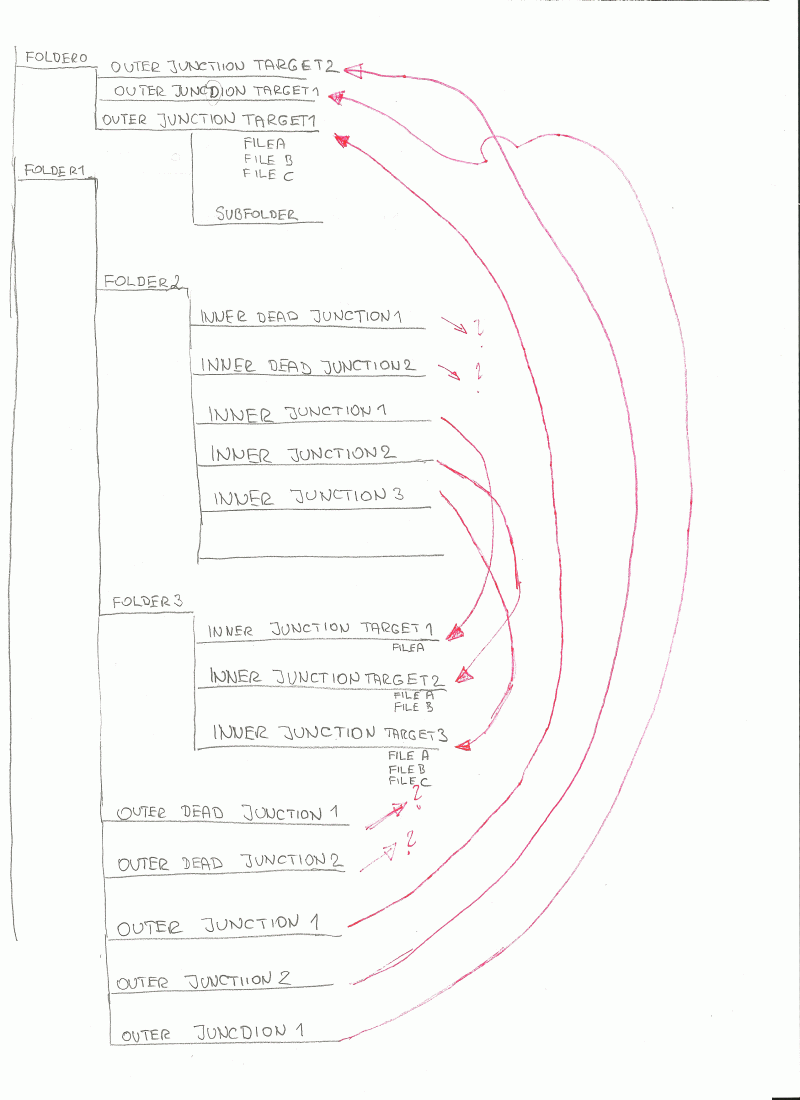 FOLDER0
OUTER JUNCTIION TARGET2
OUTER JUNCDION TARGET1
OUTER JUNCTION TARGET1
FILEA
FILE B
FILE C
FOLDER1
SUBFOLDER
FOLDER2
INNER DEAD JUNCTION1
?
INNER DEAD JUNCTION2
?
INNER JUNCTION1
INNER JUNCTION2
INNER JUNCTION3
FOLDER3
INNER JUNCTION TARGET1
FILEA
INNER JUNCTION TARGET2
FILE A
FILE B
INNER JUNCTION TARGET3
FILE A
FILE B
FILE C
?
OUTER DEAD JUNCTION 1
?
OUTER DEAD JUNCTION2
OUTER JUNCTION 1
OUTER JUNCTIION 2
OUTER JUNCDION 1